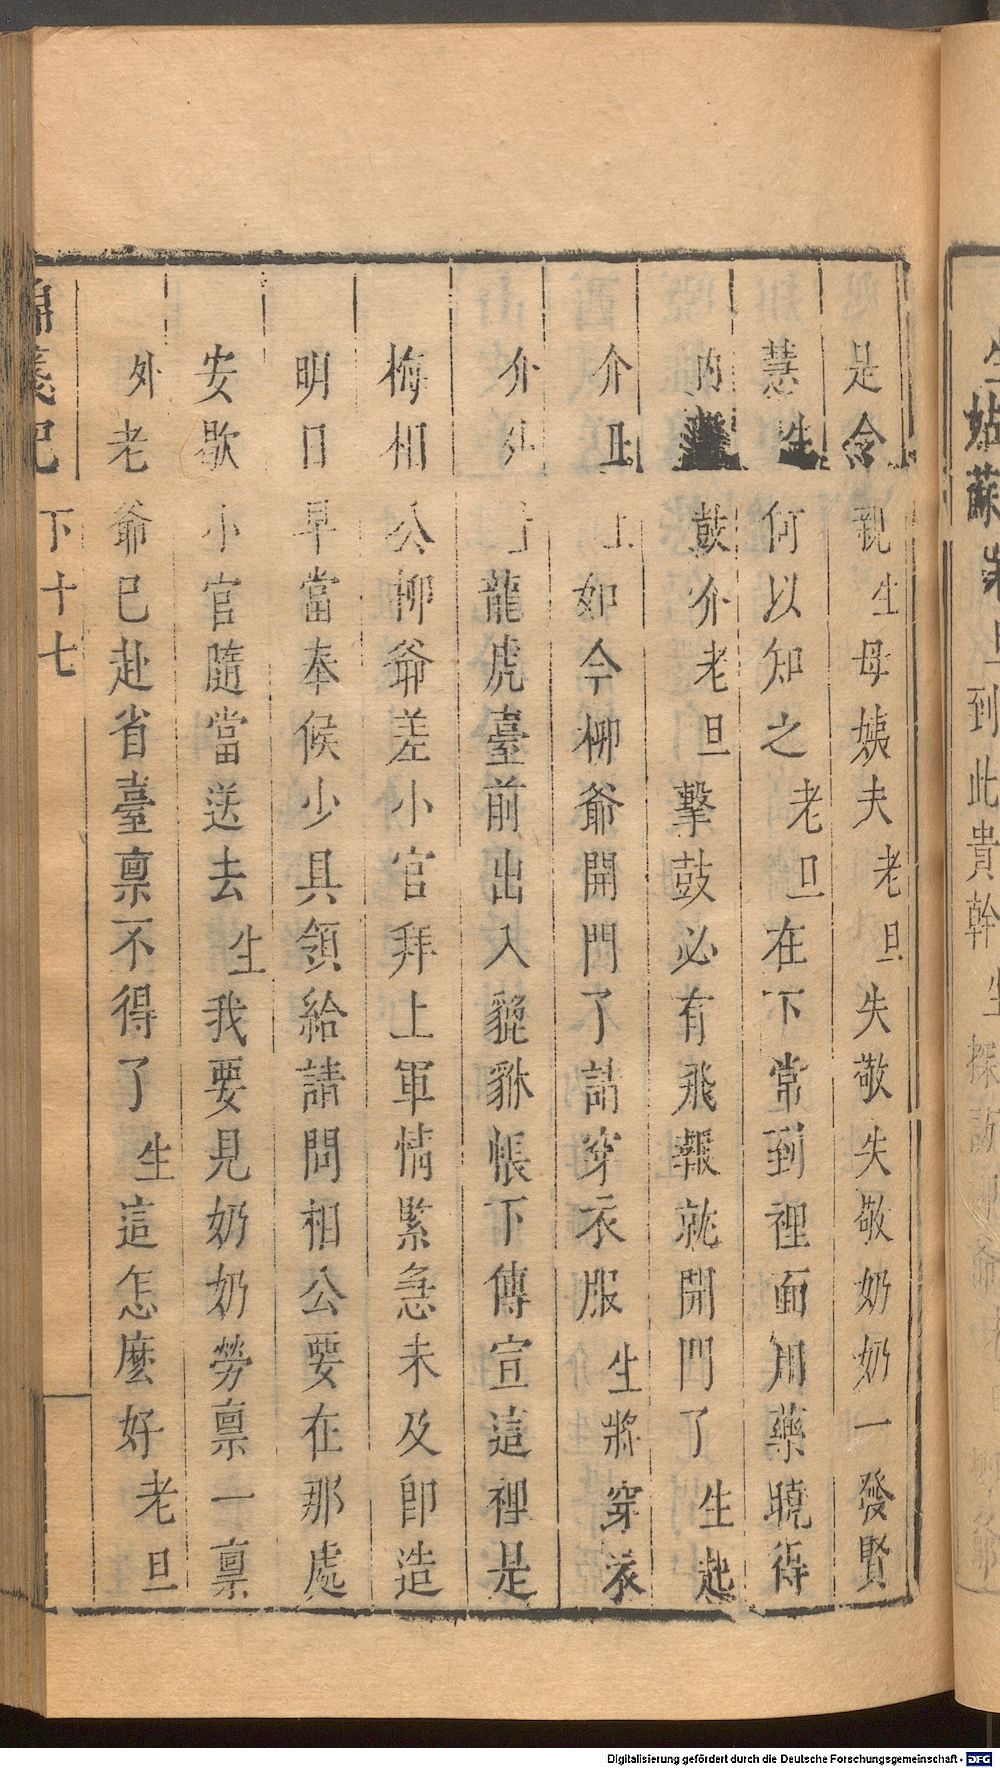 是令親生母姨夫老旦失敬失敬奶奶一發賢
慧生何以知之老旦在下常到裡面用藥曉得
的鼓介老旦擊鼓必有飛報就開門了生起
介丑上如今柳爺開門了請穿衣服生將穿衣
介外上龍虎臺前出入貔貅帳下傳宣這裡是
梅相公柳爺差小官拜上軍情緊急未及即造
明日早當奉候少具領給請問相公要在那處
安歇小官隨當送去生我要見奶奶勞稟一稟
外老爺已赴省臺稟不得了生這怎麼好老旦
錦箋記 下 十七
姑蘇 到此貴幹生探訪
Digitalisierung gefördert durch die Deutsche Forschungsgemeinschaft - DFG